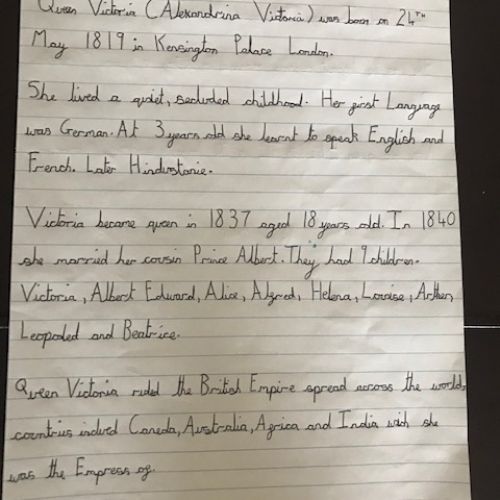 Queen Victoria (Alexandrina Victoria) was born on 24TH
May 1819 in Kensington Palace London.
She lived a quiet, secluded childhood. Her first Language
was German. At 3 years old she learnt to speak English and
French. Later Hindustanie.
Victoria became queen in 1837 aged 18 years old. In 1840
she married her cousin Prince Albert. They had 9 children.
Victoria, Albert Edward, Alice, Alfred, Helena, Louise, Arther,
Leopolded and Beatrice.
Queen Victoria ruled the British Empire spread across the world,
countries inclued Caneda, Australia, Africa and India wich she
was the Empress of.